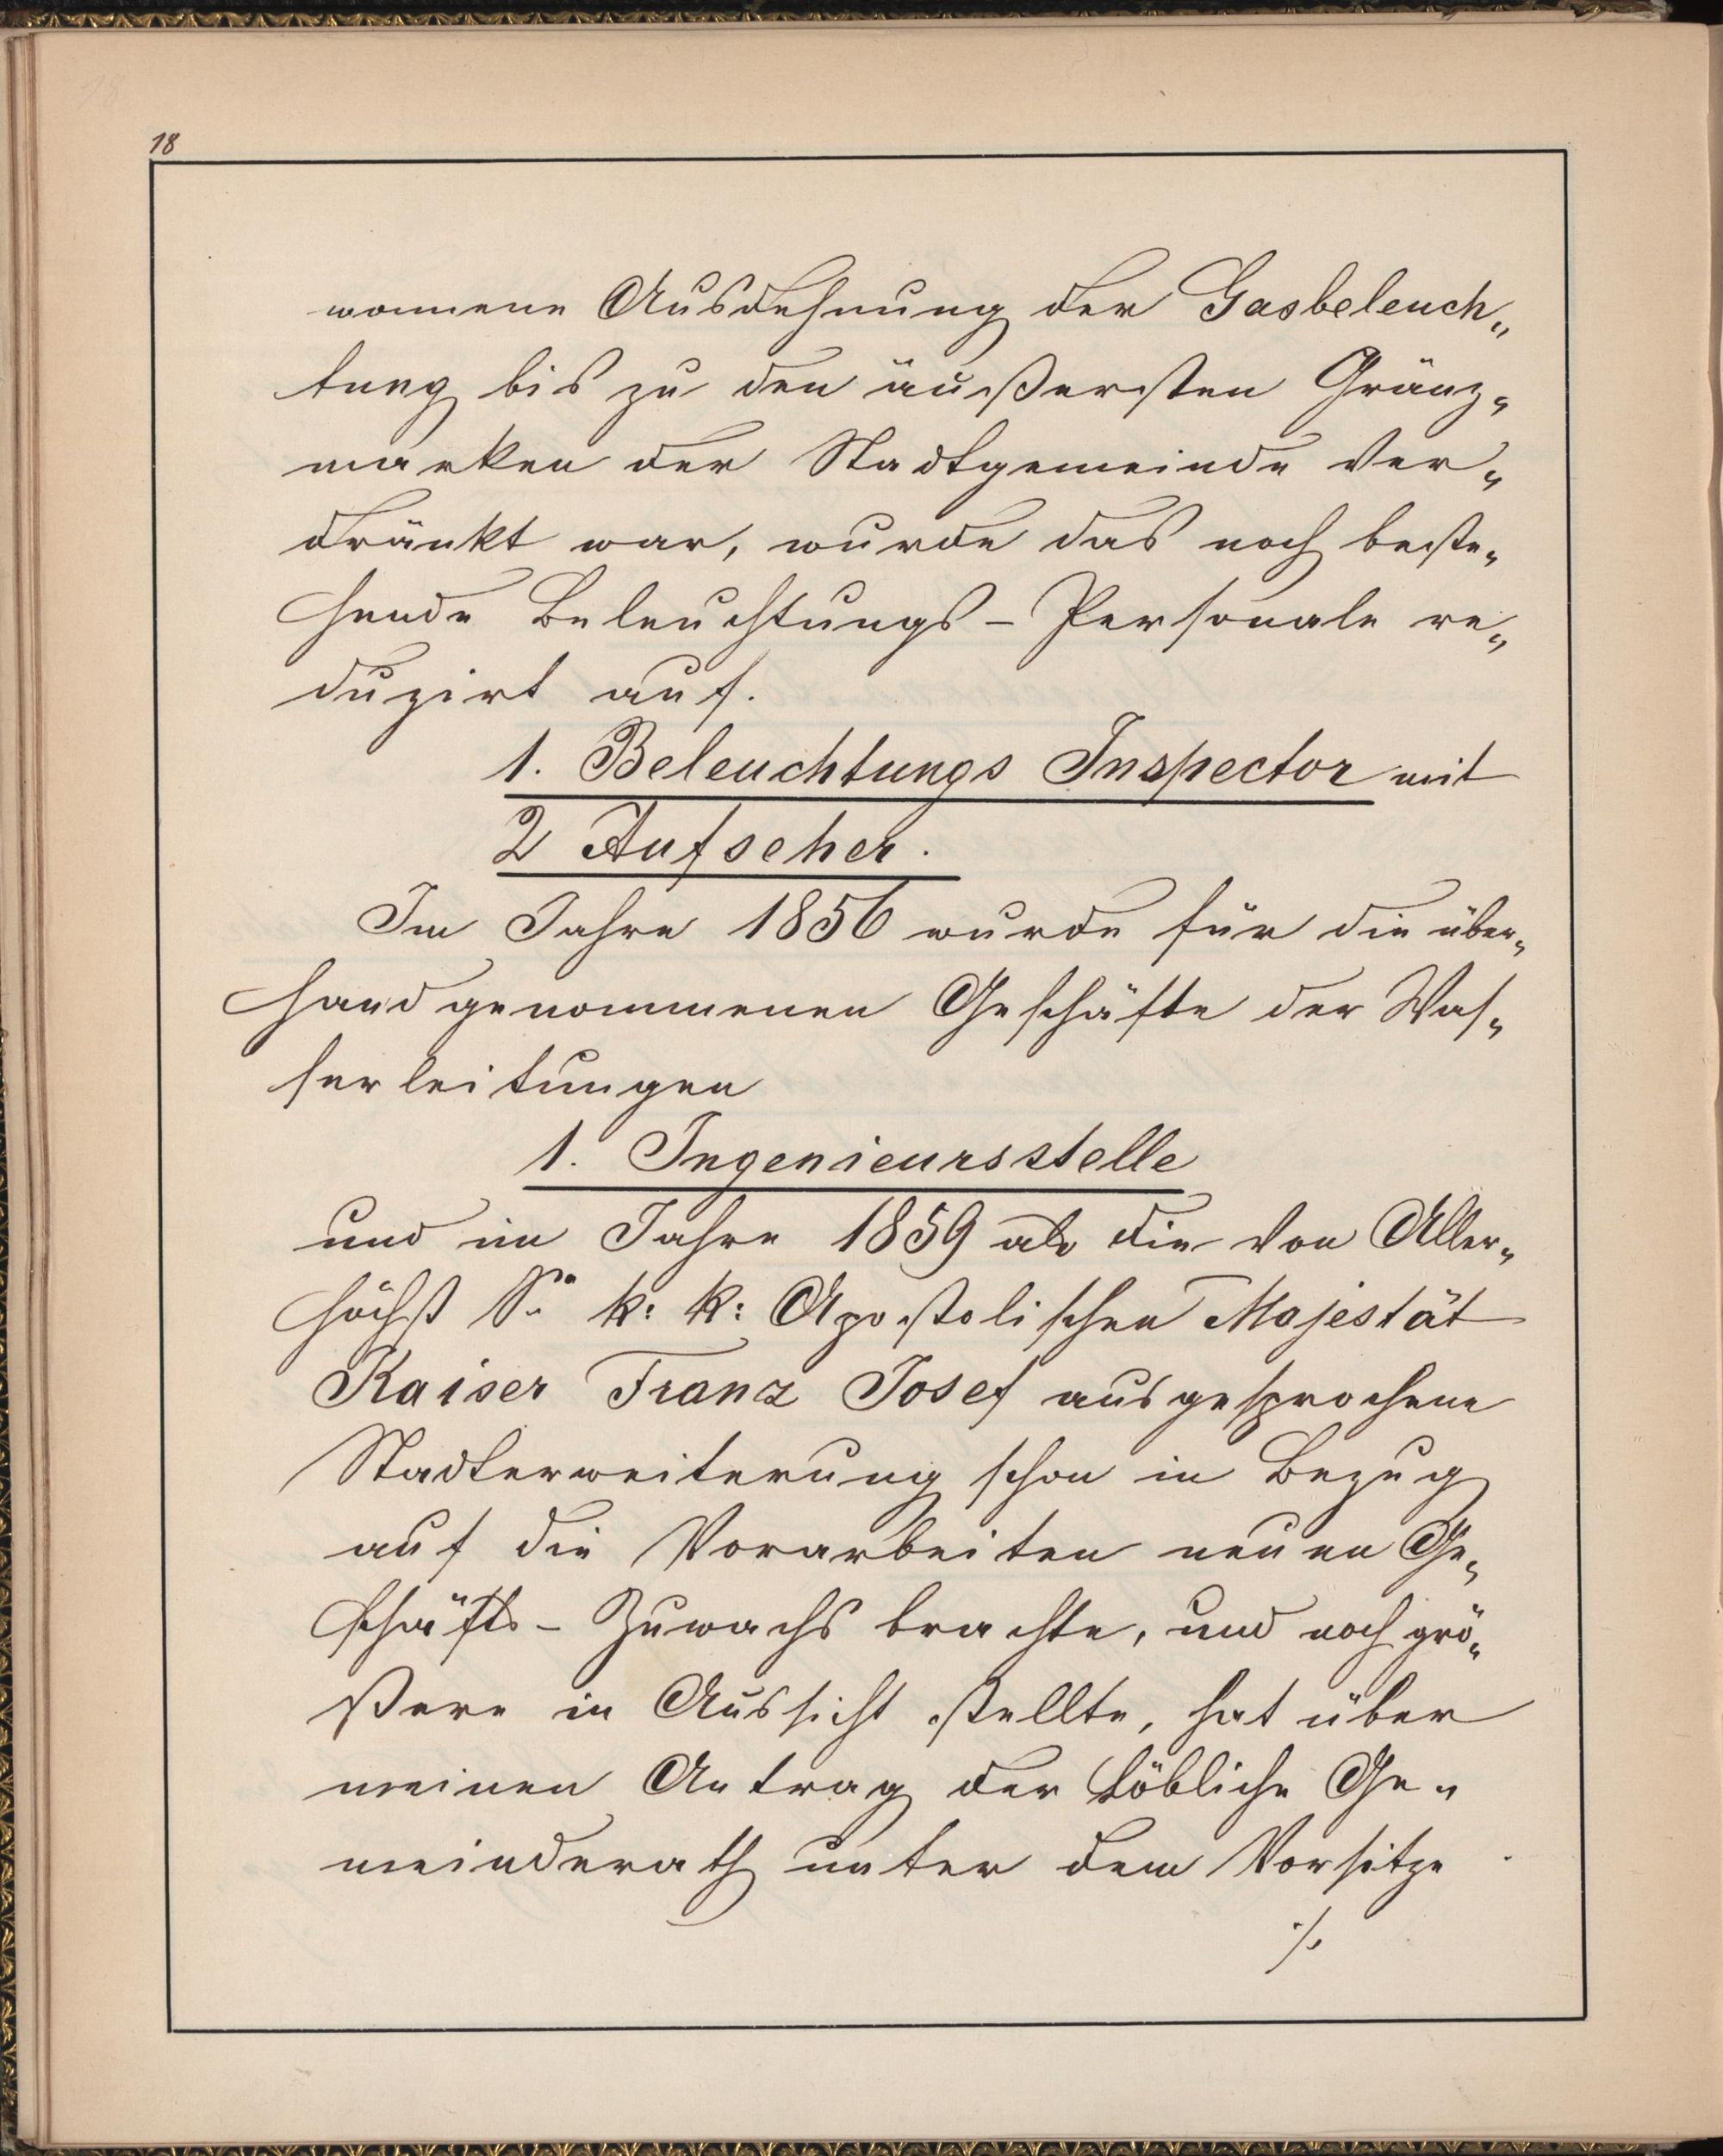 18
wonnene Ausdehnung der Gasbeleuch„
tung bis zu den äußersten Gränz„
marken der Stadtgemeinde ver„
dränkt war, wurde das noch beste„
hende Beleuchtungs-Personale re„
duzirt auf.
1. Beleuchtungs Inspector mit
2 Aufseher.
Im Jahre 1856 wurde für die über„
handgenommenen Geschäfte der Was„
serleitungen
1. Ingenieursstelle
und im Jahre 1859 als die von Aller„
höchst Sr k: k: Apostolischen Majestät
Kaiser Franz Josef ausgesprochene
Stadterweiterung schon in Bezug
auf die Vorarbeiten neuen Ge„
schäfts-Zuwachs brachte, und noch grö„
ßere in Aussicht stellte, hat über
meinen Antrag der löbliche Ge„
meinderath unter dem Vorsitze
./.